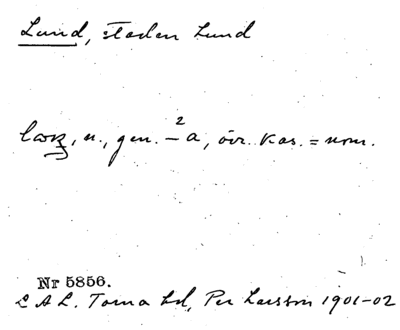 Lund, staden Lund
n., gen. –²a, övr. kas. = nom.
Nr 5856.
L A L. Torna hd, Per Larsson 1901–02